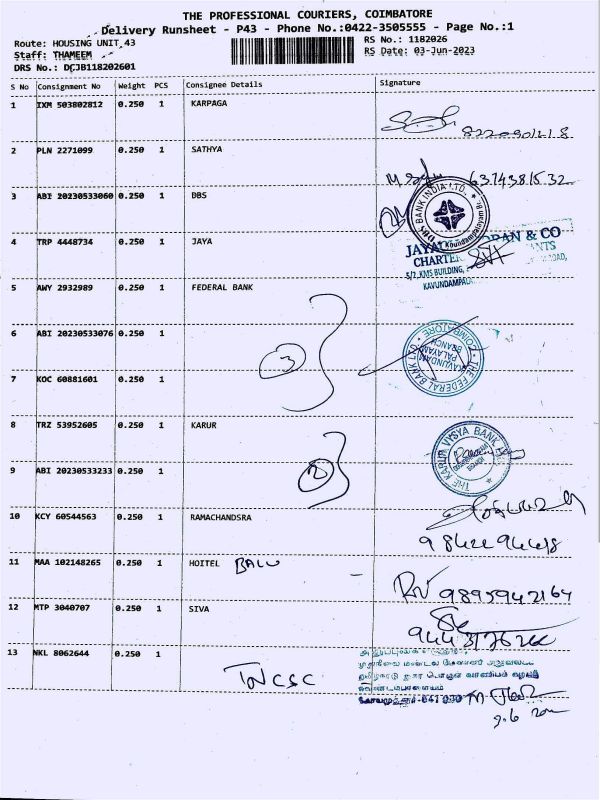 THE PROFESSIONAL COURIERS, COIMBATORE
Delivery Runsheet - P43 - Phone No.:0422-3505555 - Page No.:1
Route: HOUSING UNIT 43
RS No.: 1182026
Staff: THAMEEM
RS Date: 03-Jun-2023
DRS No.: DCJB118202601
S No Consignment No Weight PCS Consignee Details Signature
1 IXM 503802812 0.250 1 KARPAGA
2 PLN 2271099 0.250 1 SATHYA
6374381532
3 ABI 20230533060 0.250 1 DBS
BANK INDIA LTD.
4 TRP 4448734 0.250 1 JAYA
& CO
5/2, KMS BUILDING,
5 AWY 2932989 0.250 1 FEDERAL BANK
6 ABI 20230533076 0.250 1
3
THE FEDERAL BANK LTD COIMBATORE
7 KOC 60881601 0.250 1
8 TRZ 53952605 0.250 1 KARUR
THE KARUR VYSYA BANK
9 ABI 20230533233 0.250 1
2
10 KCY 60544563 0.250 1 RAMACHANDSRA
11 MAA 102148265 0.250 1 HOITEL BALU
9895942164
12 MTP 3040707 0.250 1 SIVA
13 NKL 8062644 0.250 1
TNCSC
641 030